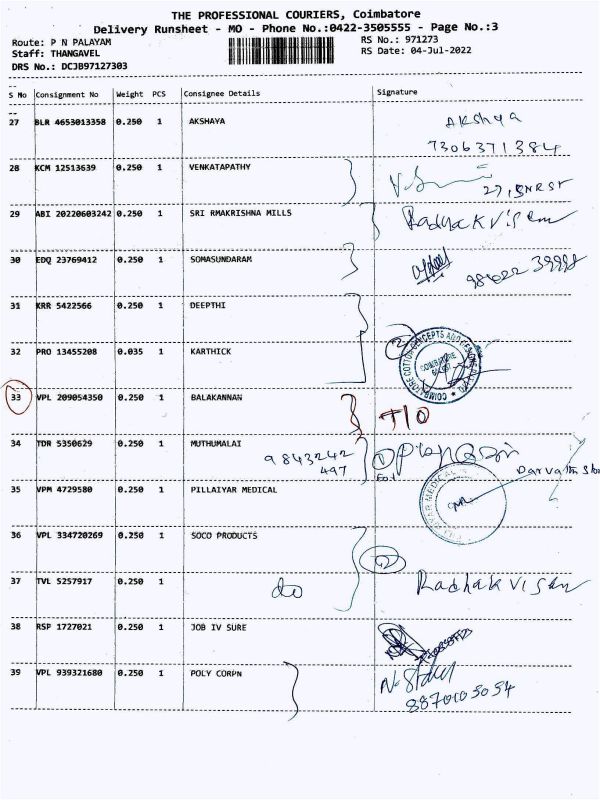 THE PROFESSIONAL COURIERS, Coimbatore
Delivery Runsheet - MO - Phone No.:0422-3505555 - Page No.:3
Route: P N PALAYAM RS No.: 971273
Staff: THANGAVEL RS Date: 04-Jul-2022
DRS No.: DCJB97127303
S No Consignment No Weight PCS Consignee Details Signature
27 BLR 4653013358 0.250 1 AKSHAYA Akshya
7306371384
28 KCM 12513639 0.250 1 VENKATAPATHY
29 ABI 20220603242 0.250 1 SRI RMAKRISHNA MILLS Radhakvisam
30 EDQ 23769412 0.250 1 SOMASUNDARAM
31 KRR 5422566 0.250 1 DEEPTHI
32 PRO 13455208 0.035 1 KARTHICK 2
COIMBATORE
33 VPL 209054350 0.250 1 BALAKANNAN
34 TDR 5350629 0.250 1 MUTHUMALAI 9843242
497
35 VPM 4729580 0.250 1 PILLAIYAR MEDICAL
36 VPL 334720269 0.250 1 SOCO PRODUCTS 2
37 TVL 5257917 0.250 1 do
38 RSP 1727021 0.250 1 JOB IV SURE
39 VPL 939321680 0.250 1 POLY CORPN
8870105054